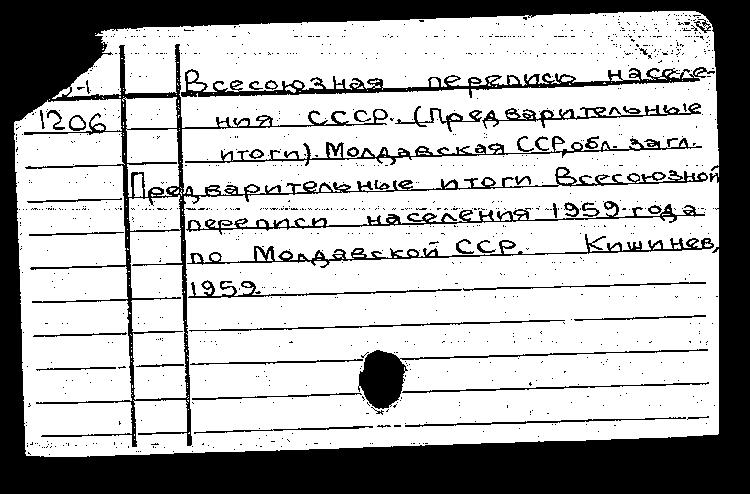 Всесоюзная перепись населе-
1206 ния СССР. (Предварительные
итоги). Молдавская ССР, обл. загл.
Предварительные итоги Всесоюзной
переписи населения 1959 года
по Молдавской ССР. Кишинев,
1959.